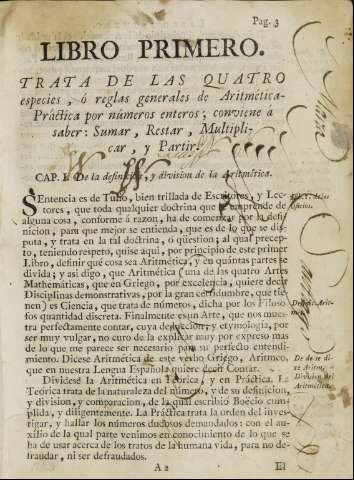 Pag. 3
LIBRO PRIMERO.
TRATA DE LAS QUATRO
especies, ó reglas generales de Aritmética-
Práctica por números enteros; conviene á
saber: Sumar, Restar, Multipli-
car, y Partir.
CAP. I. De la definicion, y division de la Aritmética.
SEntencia es de Tulio, bien trillada de Escritores, y Lec-
tores, que toda qualquier doctrina que se emprende de
alguna cosa, conforme á razon, ha de comenzar por la defi-
nicion, para que mejor se entienda, que es de lo que se dis-
puta, y trata en la tal doctrina, ó qüestion; al qual precep-
to, teniendo respeto, quise aqui, por principio de este primer
Libro, definir qué cosa sea Aritmética, y en quántas partes se
divida; y asi digo, que Aritmética (una de las quatro Artes
Mathemáticas, que en Griego, por excelencia, quiere decir
Disciplinas demonstrativas, por la gran certidumbre, que tie-
nen) es Ciencia, que trata de números, dicha por los Filoso-
fos quantidad discreta. Finalmente es un Arte, que nos mues-
tra perfectamente contar, cuya definicion, y etymología, por
ser muy vulgar, no curo de la explicar muy por expreso mas
de lo que me parece ser necesario para su perfecto entendi-
miento. Dicese Aritmética de este verbo Griego, Aritmeo,
que en nuestra Lengua Española quiere decir Contar.
De do se di-
ce Aritm.
Division de
Aritmética.
Dividese la Aritmética en Teórica, y en Práctica. La
Teórica trata de la naturaleza del número, y de su definicion,
y division, y comparacion, de la qual escribió Boëcio cum-
plida, y diligentemente. La Práctica trata la orden del inves-
tigar, y hallar los números dudosos demandados: con el au-
xilio de la qual parte venimos en conocimiento de lo que se
ha de usar acerca de los tratos de la humana vida, para no de-
fraudar, ni ser defraudados.
A 2
El